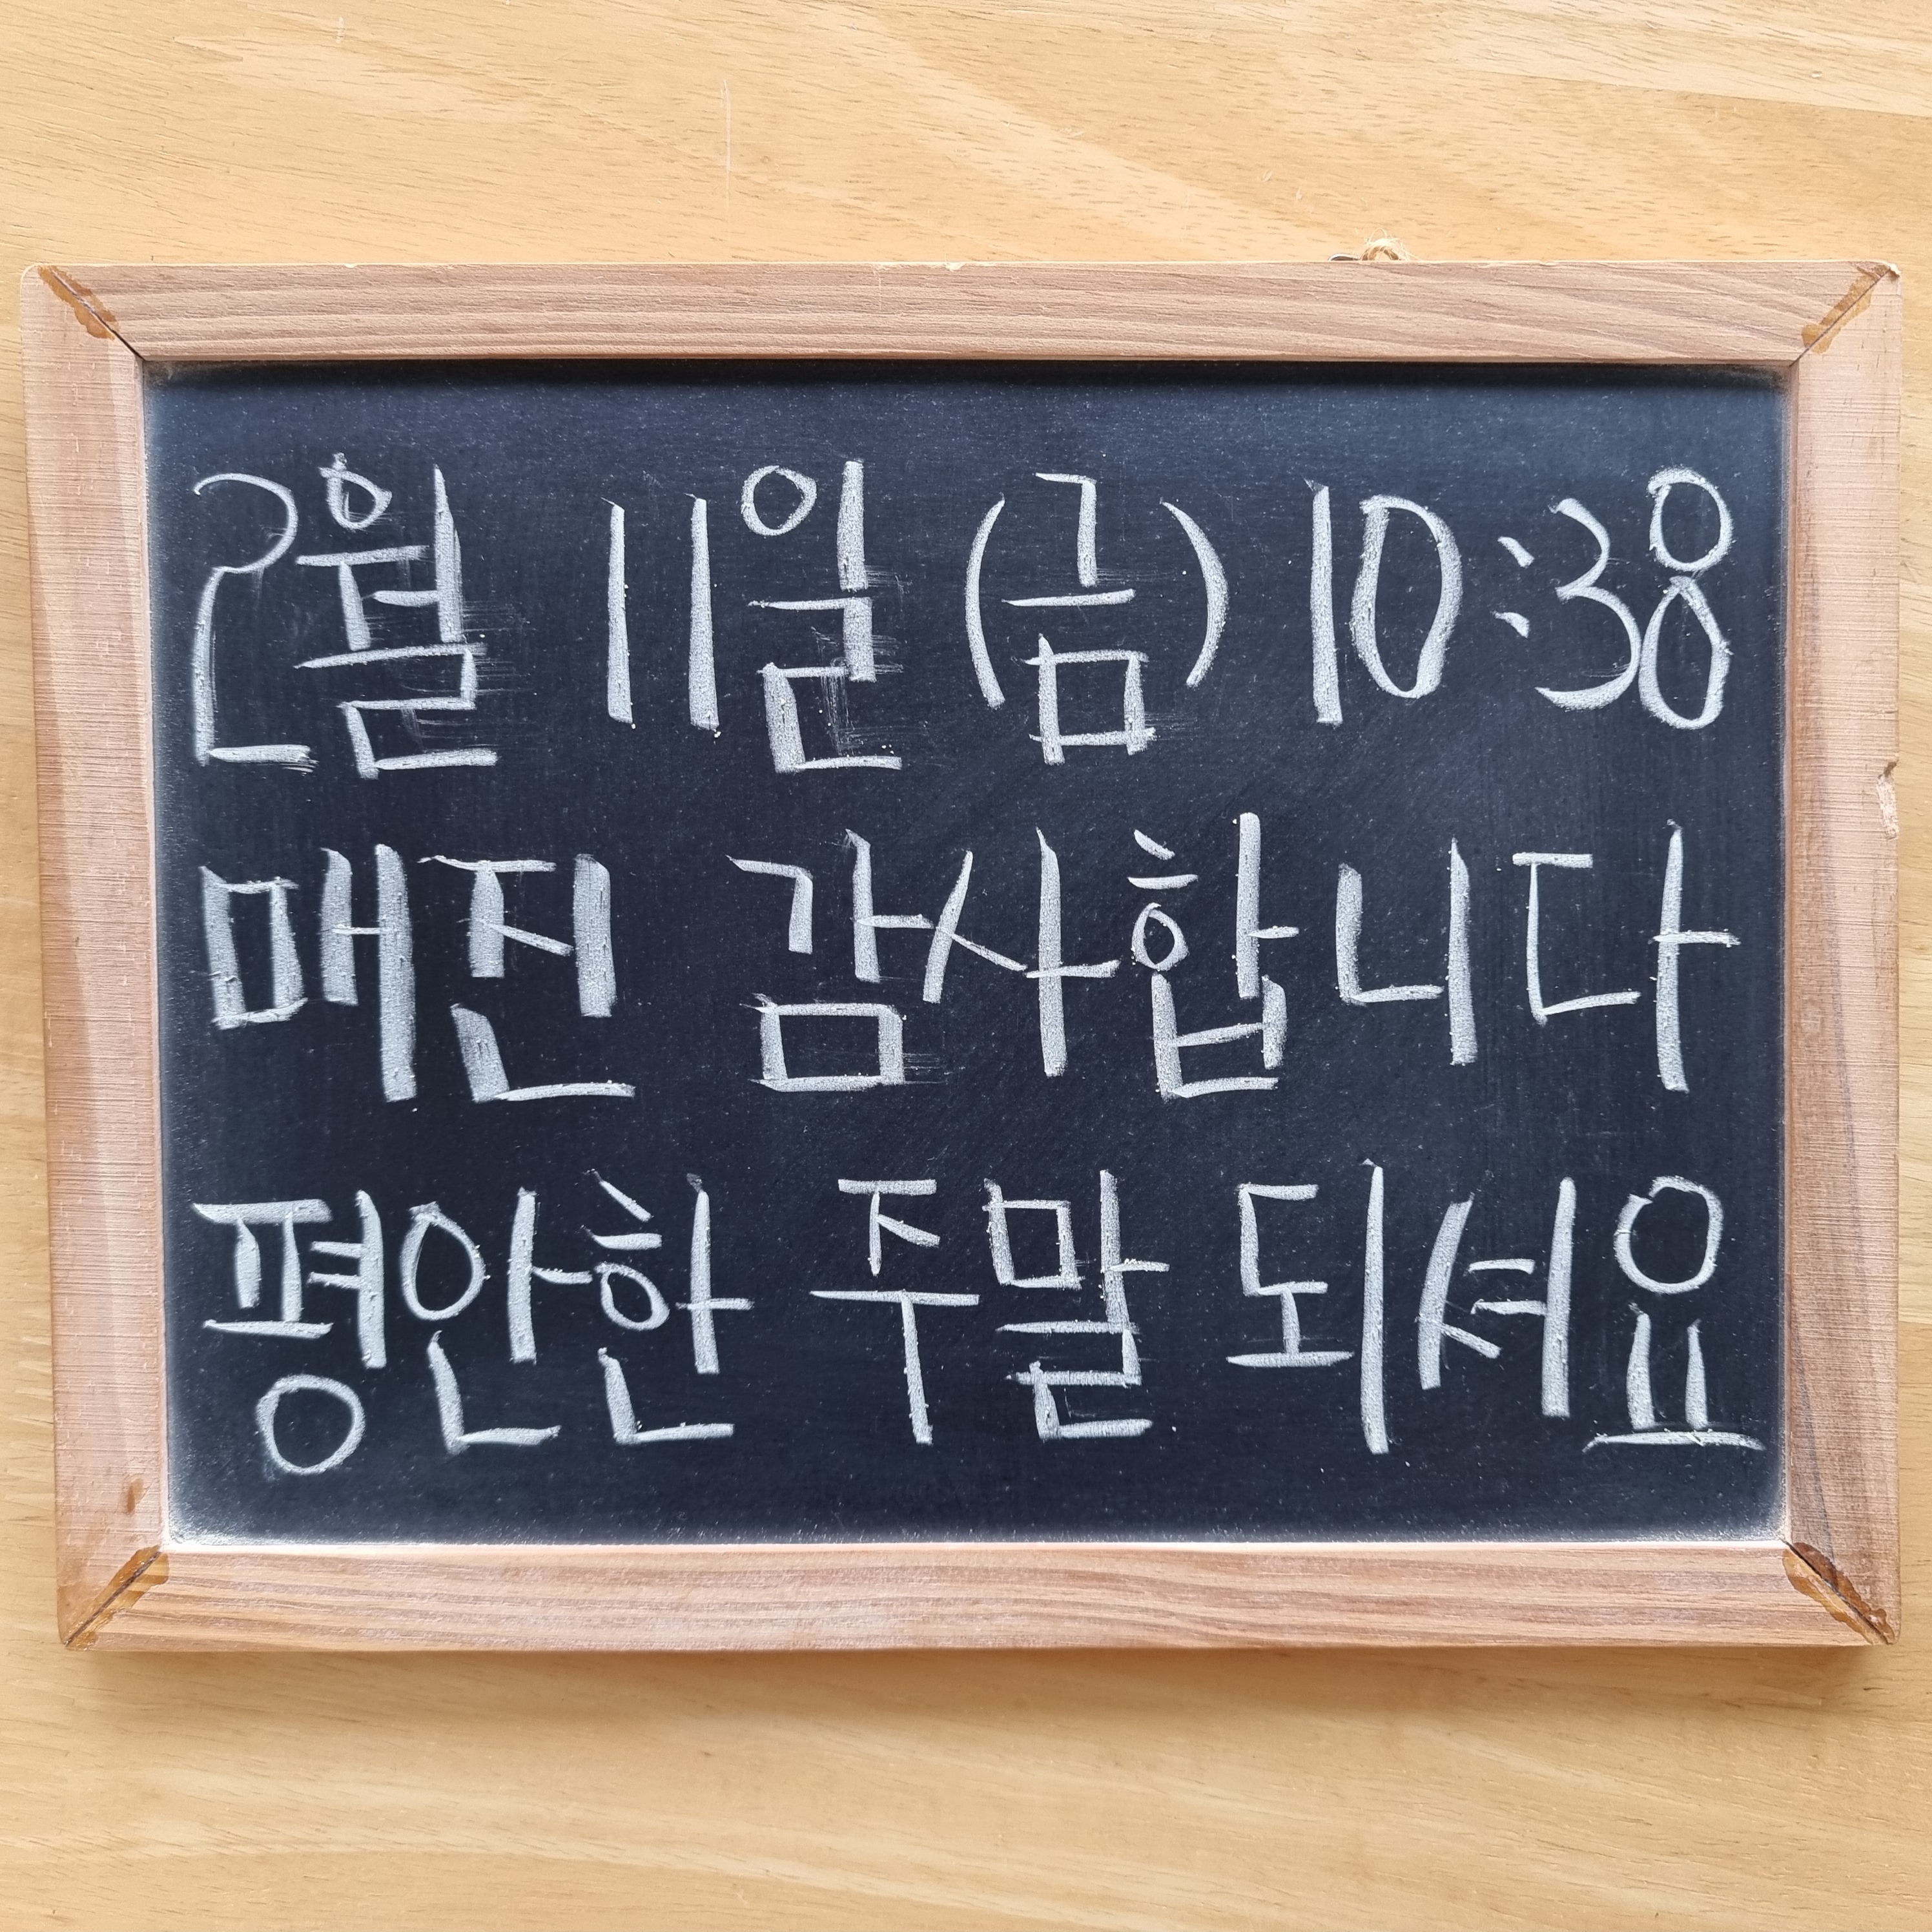 2월 11일 (금) 10:38
매진 감사합니다
평안한 주말 되셔요